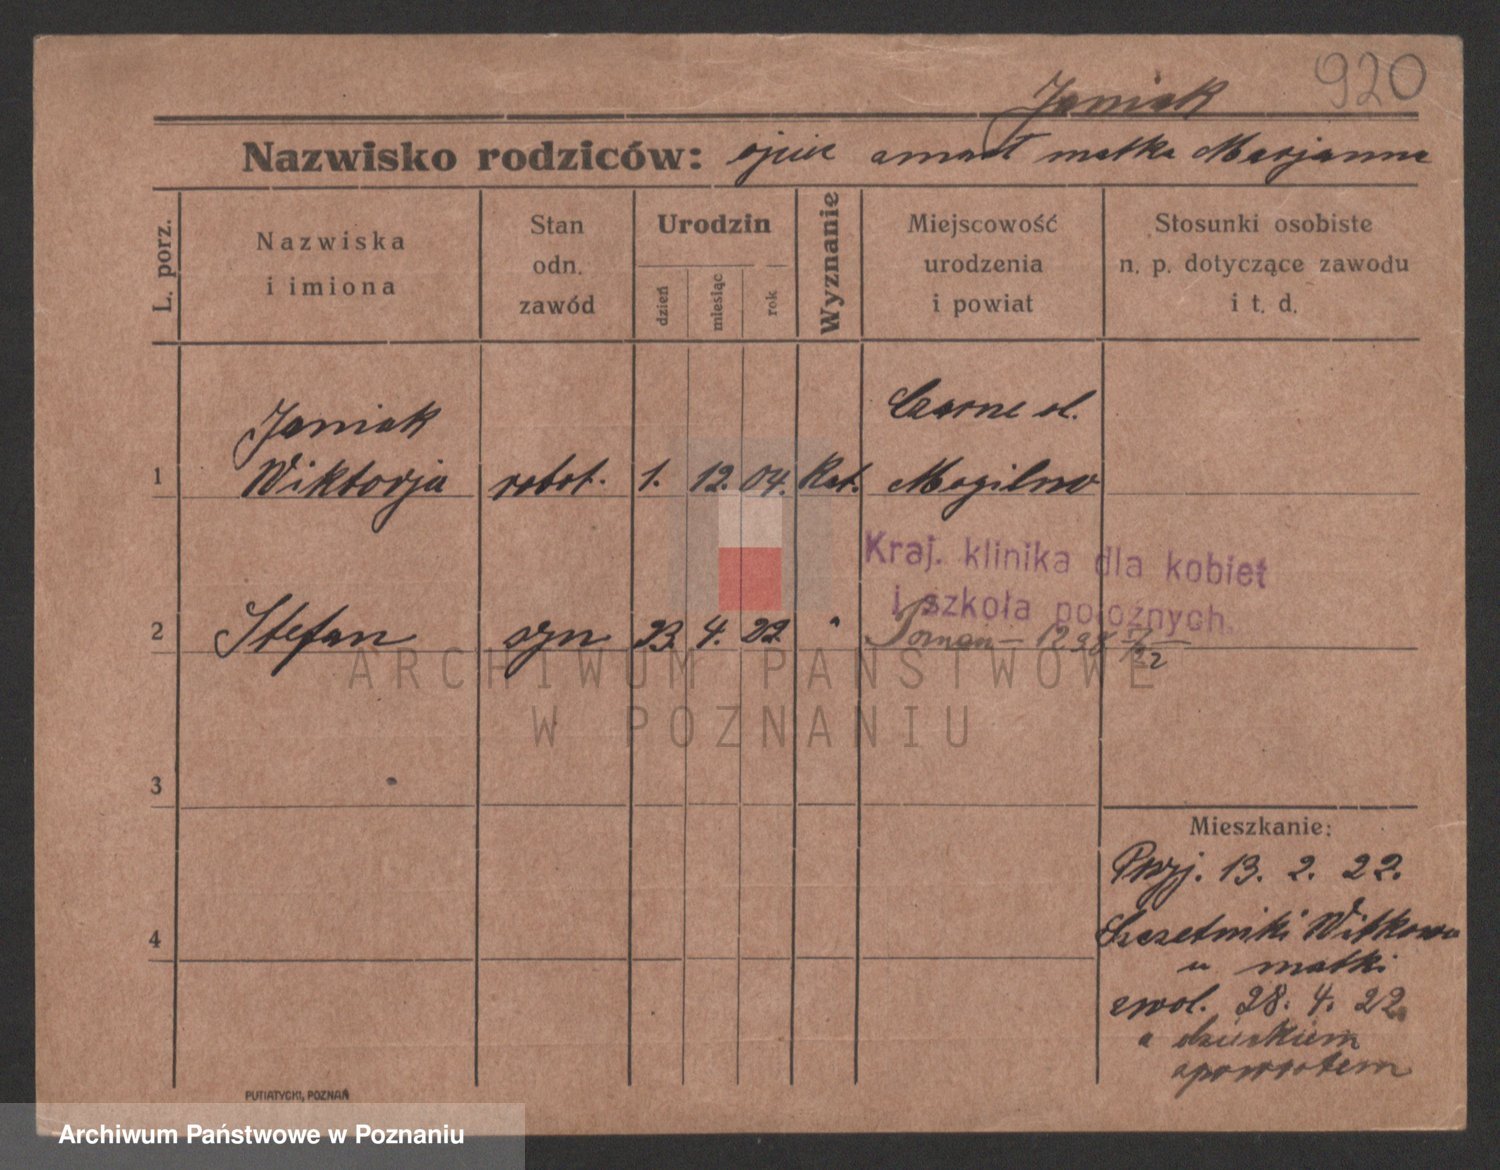 920
Janiak
Nazwisko rodziców: ojciec zmarł matka Marjanna
L. porz.
Nazwiska
i imiona
Stan
odn.
zawód
Urodzin
dzień
miesiąc
rok
Wyznanie
Miejscowość
urodzenia
i powiat
Stosunki osobiste
n. p. dotyczące zawodu
i t. d.
Janiak
1 Wiktorja robot. 1. 12. 04. Kat.
Czarne ol.
Mogilno
Kraj. klinika dla kobiet
i szkoła położnych.
2 Stefan syn 23. 4. 22. "
Poznań - 1298
3
4
Mieszkanie:
Przyj. 13. 2. 22.
Szczetniki Witkowo
u matki
zwol. 28. 4. 22.
z dzieckiem
spowrotem
PUTIATYCKI, POZNAŃ
ARCHIWUM PAŃSTWOWE
W POZNANIU
Archiwum Państwowe w Poznaniu